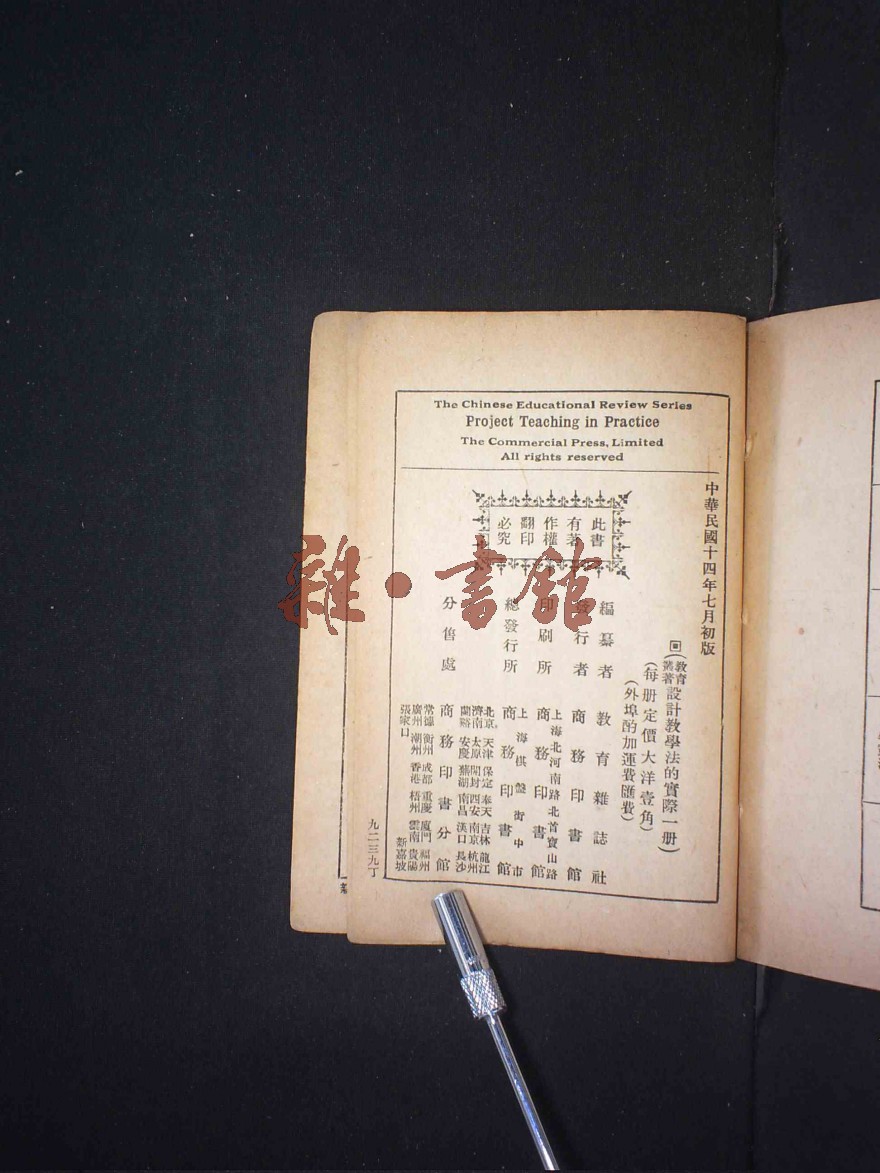 The Chinese Educational Review Series
Project Teaching in Practice
The Commercial Press, Limited
All rights reserved
中華民國十四年七月初版
(教育叢著設計教學法的實際一册)
(每册定價大洋壹角)
(外埠酌加運費匯費)
此書
有著
作權
翻印
必究
編纂者 教育雜誌社
發行者 商務印書館
上海北河南路北首寶山路
印刷所 商務印書館
上海棋盤街中市
總發行所 商務印書館
北京 天津 保定 奉天 吉林 龍江
濟南 太原 開封 西安 南京 杭州
蘭谿 安慶 蕪湖 南昌 漢口 長沙
分售處 商務印書分館
常德 衡州 成都 重慶 廈門 福州
廣州 潮州 香港 梧州 雲南 貴陽
張家口 新嘉坡
九二三九丁
雜·書館